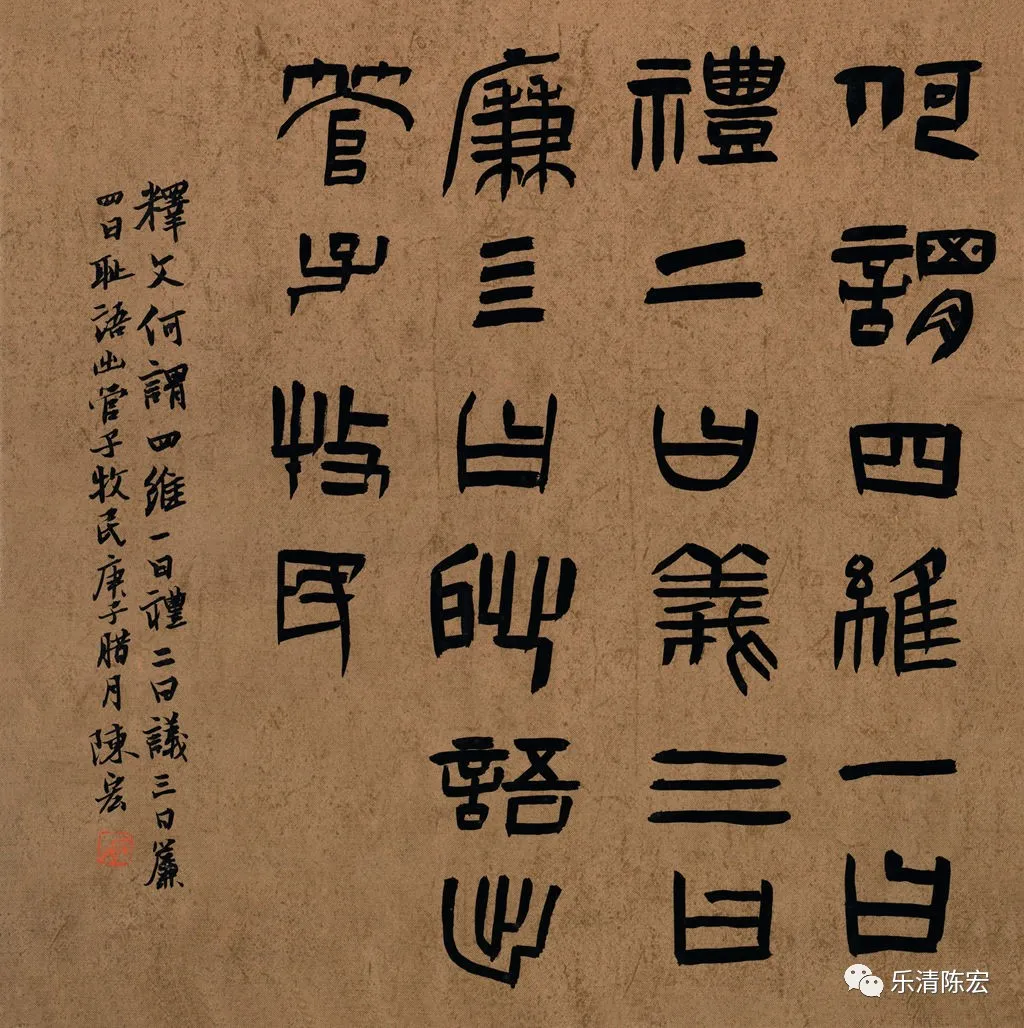 何謂四維一曰
禮二曰義三曰
廉亖曰耻語出
管子牧民
釋文何謂四維一曰禮二曰議三曰簾
四曰耻語出管子牧民庚子腊月陳宏
乐清陈宏